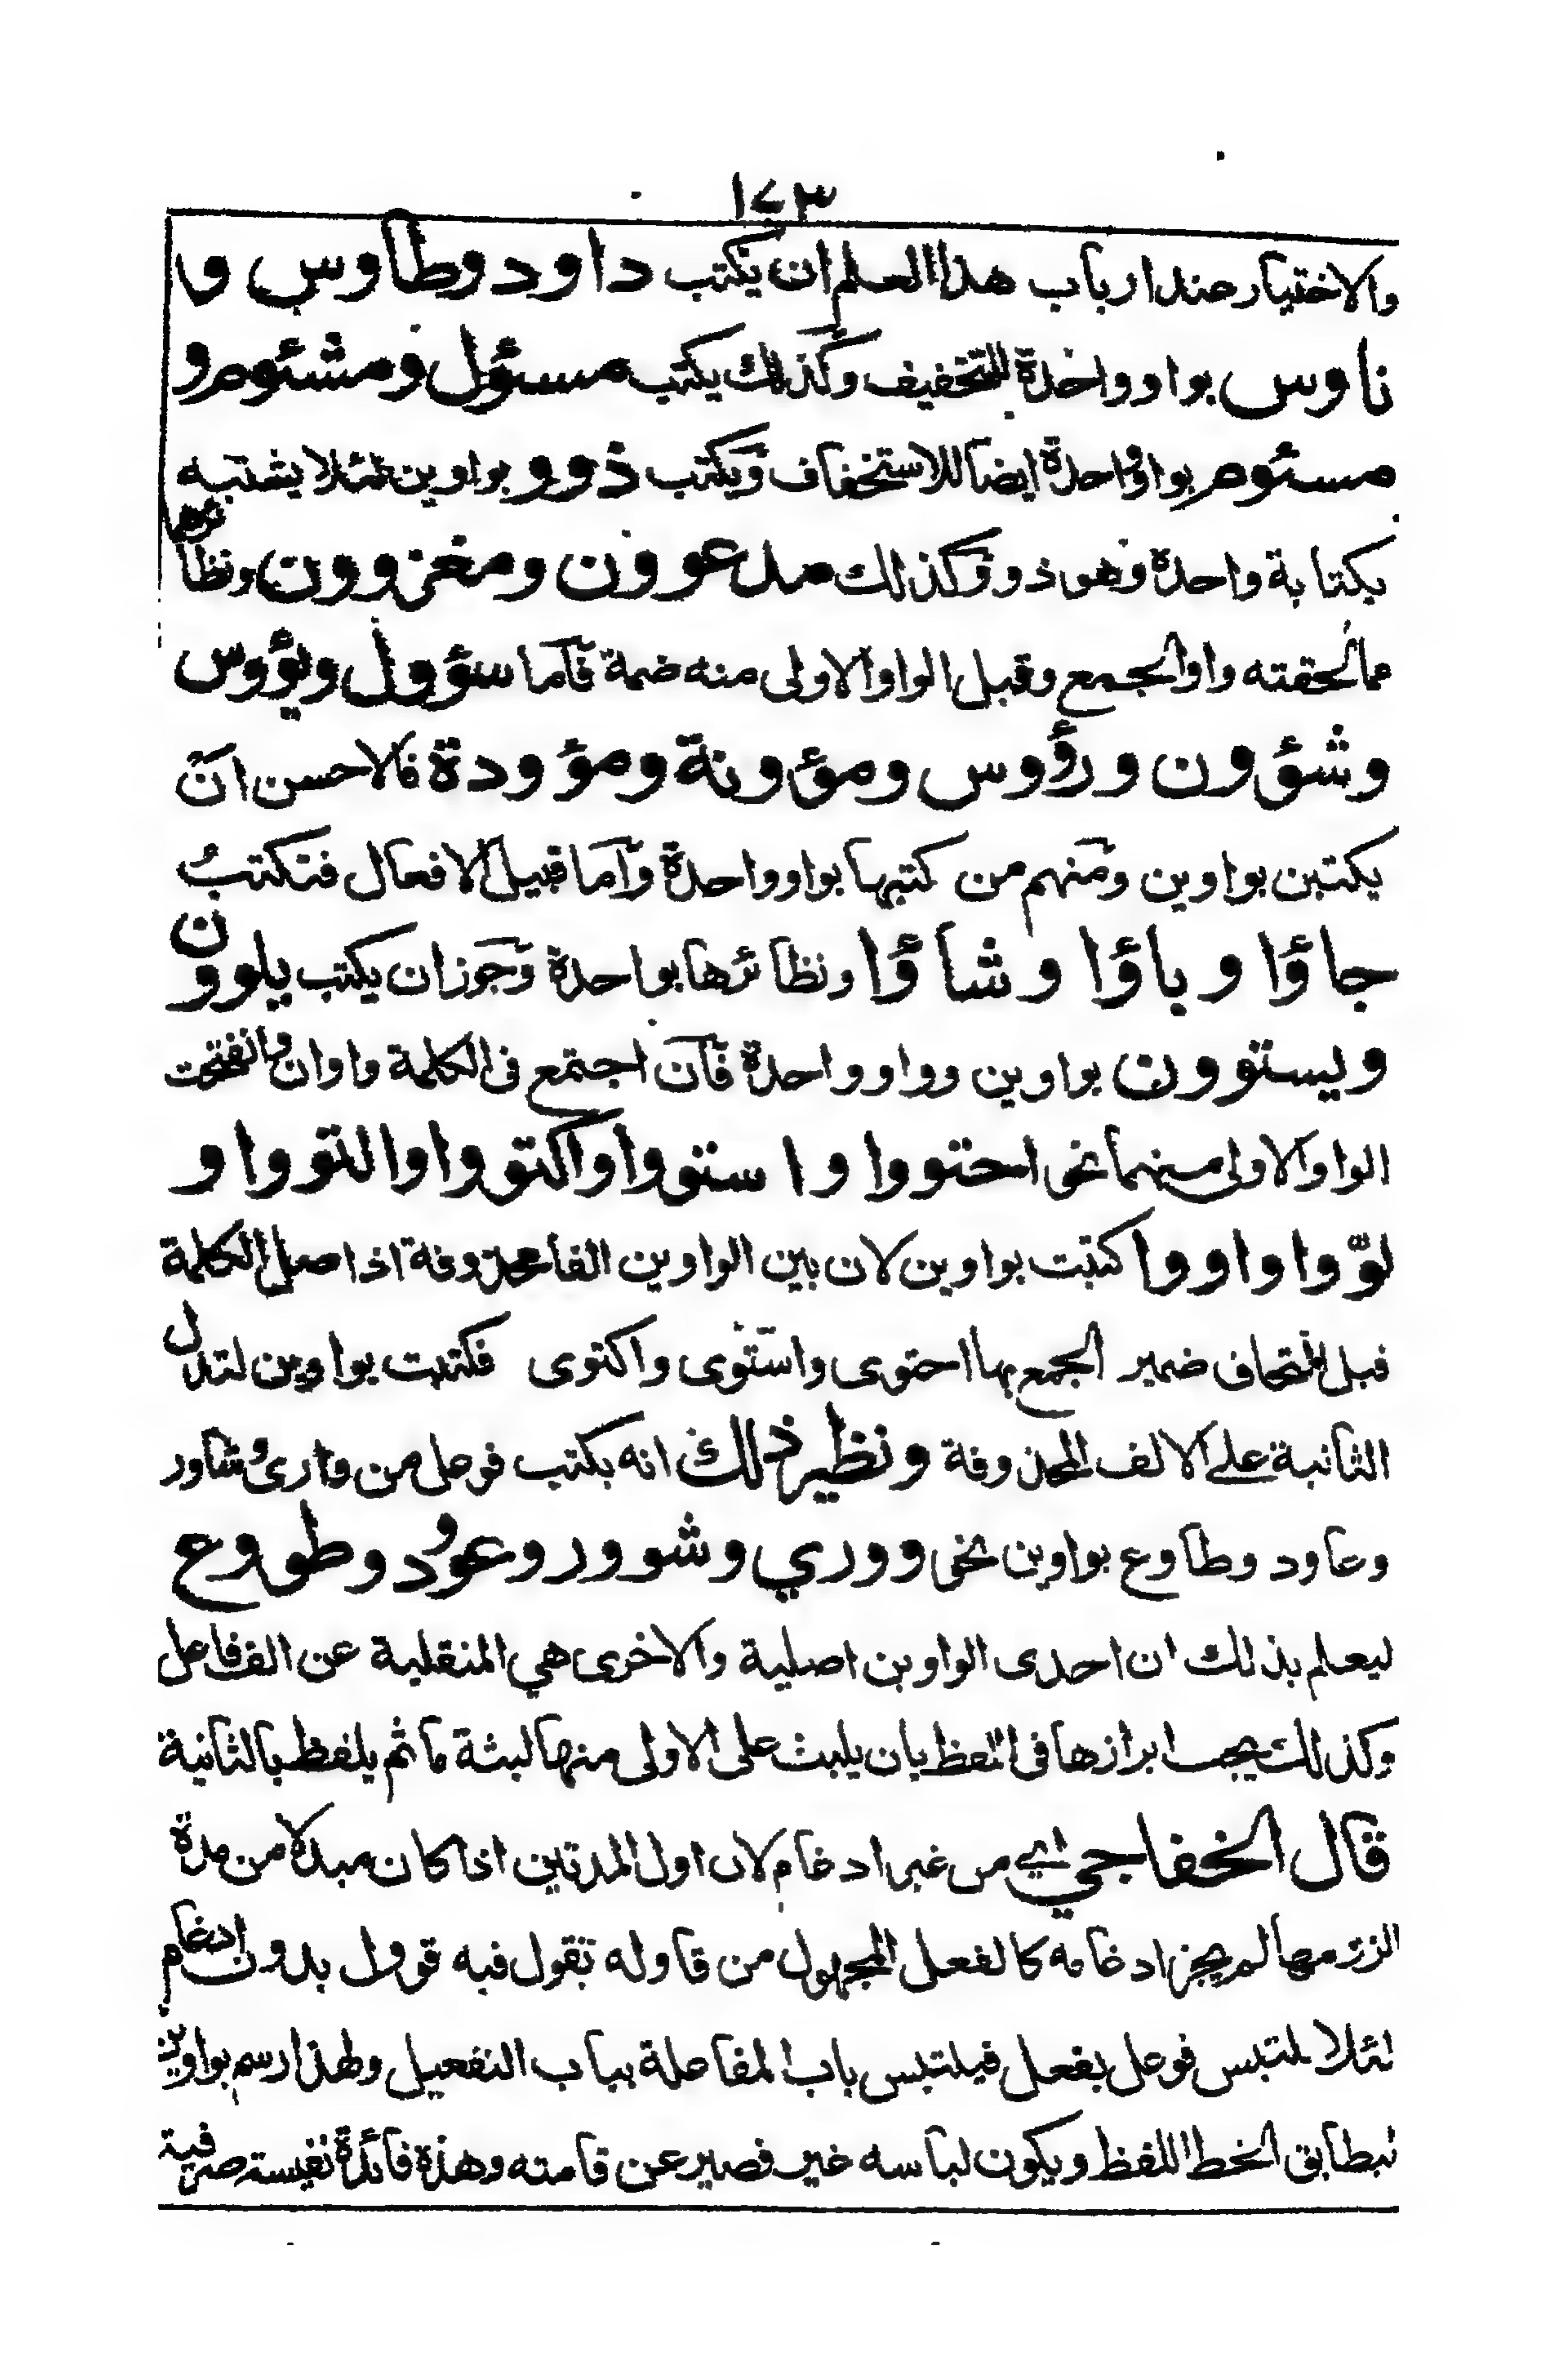 ١٧٣
والاختيار عند ارباب هذا العلم ان يكتب داود وطاوس و
ناوس بواو واحدة للتخفيف وكذلك يكتب مسئول ومشئوم و
مسئوم بواو واحدة ايضا للاستخفاف ويكتب ذوو بواوين لئلا يشتبه
بكتابة واحدة وهو ذو وكذلك مدعوون ومغزوون ونظائرها
مما لحقته واو الجمع وقبل الواو الاولى منه ضمة فاما سؤول ويؤوس
وشؤون ورؤوس ومؤونة ومؤودة فالاحسن ان
يكتبن بواوين ومنهم من كتبها بواو واحدة واما قبيل الافعال فتكتب
جاؤا وباؤا وشاؤا ونظائرها بواحدة وجوز ان يكتب يلوون
ويستوون بواوين وواو واحدة فان اجتمع فى الكلمة واوان وانفتحت
الواو الاولى منهما نحو احتووا واستووا واكتووا والتووا و
لوّوا واووا كتبت بواوين لان بين الواوين الفا محذوفة اذ اصل الكلمة
قبل التحاف ضمير الجمع بها احتوى واستوى واكتوى فكتبت بواوين لتدل
الثانية على الالف المحذوفة ونظير ذلك انه يكتب فوعل من وارى وشاور
وعاود وطاوع بواوين نحو ووري وشوور وعوود وطووع
ليعلم بذلك ان احدى الواوين اصلية والاخرى هي المنقلبة عن الف فاعل
وكذلك يجب ابرازها فى اللفظ بان يلبث على الاولى منها لبثة ما ثم يلفظ بالثانية
قال الخفاجي اي من غير ادغام لان اول المدتين اذا كان مبدلا من مدة
الزئدة لم يجز ادغامه كالفعل المجهول من قاوله تقول فيه قوول بدون ادغام
لئلا يلتبس فوعل بفعل فيلتبس باب المفاعلة بباب التفعيل ولهذا رسم بواوين
ليطابق الخط اللفظ ويكون لباسه غير قصير عن قامته وهذه فائدة نفيسة صرفية